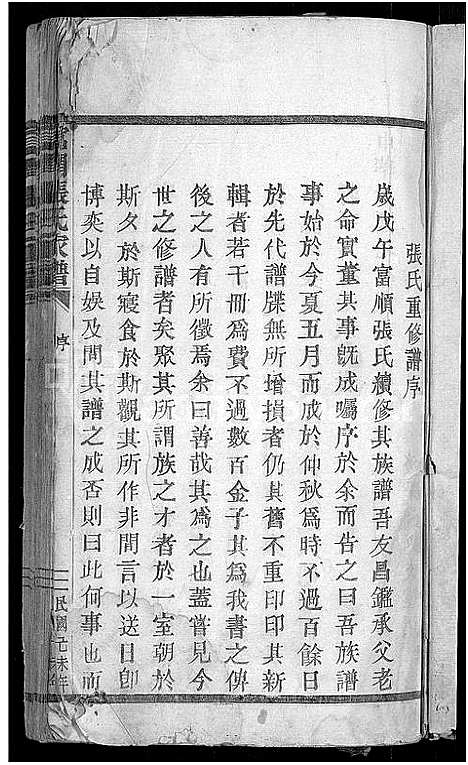 張氏重修譜序
歲戊午富順張氏續修其族譜吾友昌鑑承父老
之命實董其事既成囑序於余而告之曰吾族譜
事始於今夏五月而成於仲秋為時不過百餘日
於先代譜牒無所增損者仍其舊不重印印其新
輯者若干冊為費不過數百金子其為我書之俾
後之人有所徵焉余曰善哉其為之也蓋嘗見今
世之修譜者矣聚其所謂族之才者於一室朝於
斯夕於斯寢食於斯觀其所作非閒言以送日卽
博奕以自娛及問其譜之成否則曰此何事也而
張氏家譜
序
民國己未年